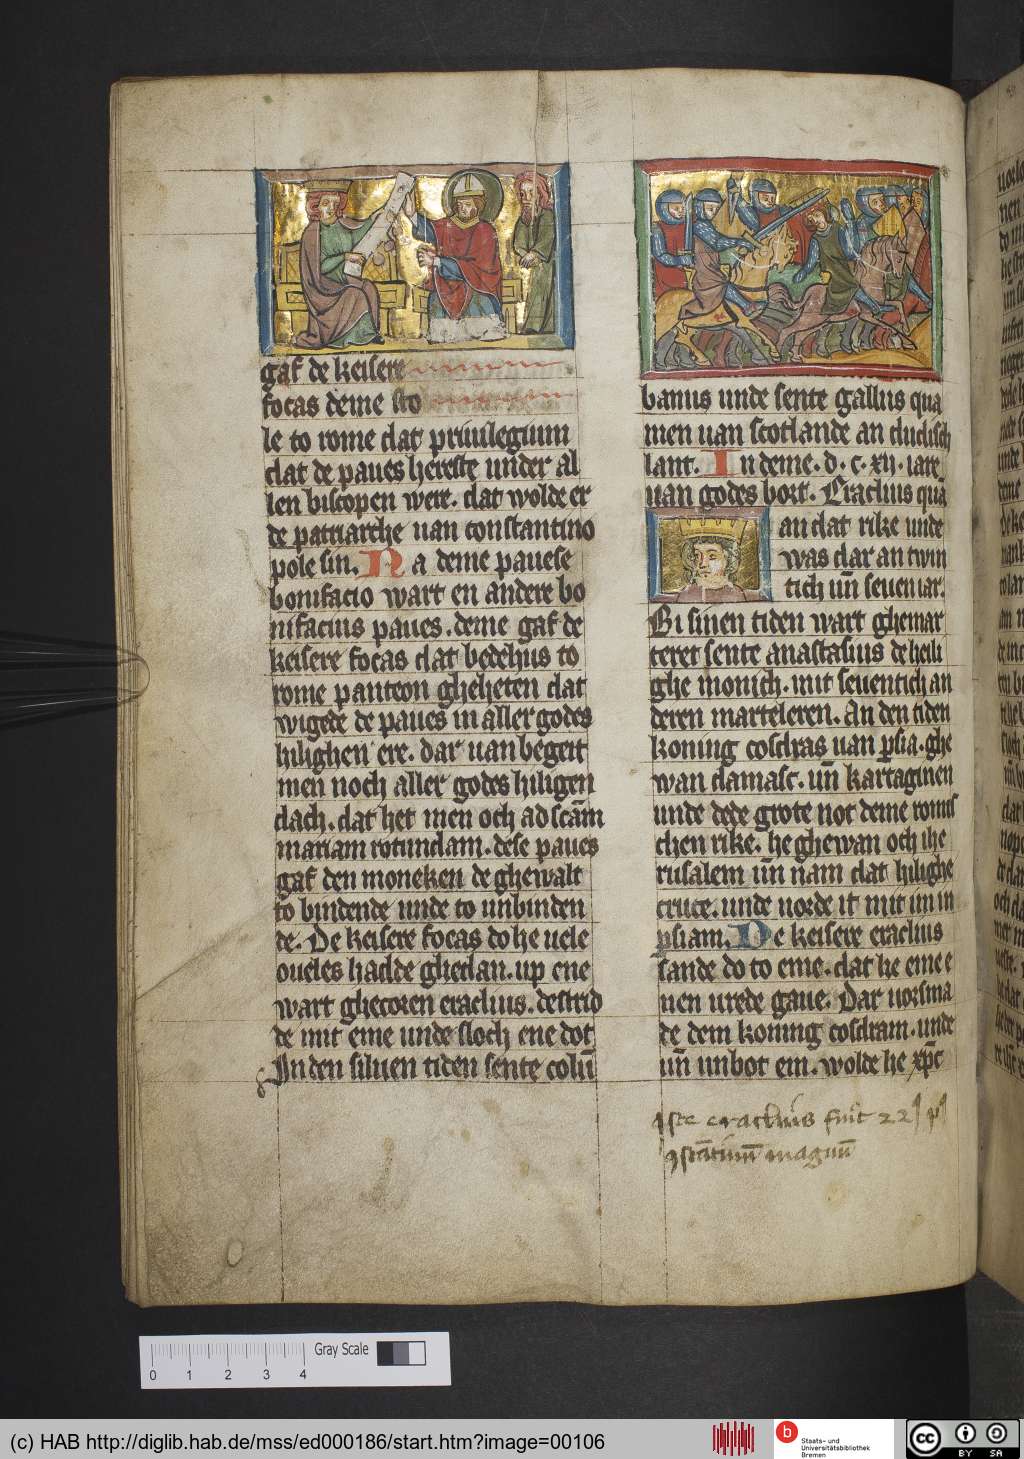 gaf de keisere
focas deme sto
le to rome dat priuilegium
dat de paues hereste under al
len biscopen were. dat wolde er
de patriarche uan constantino
pole sin. Na deme pauese
bonifacio wart en andere bo
nifacius paues. deme gaf de
keisere focas dat bedehus to
rome panteon gheheten dat
wigede de paues in aller godes
hilighen ere. dar uan begeit
men noch aller godes hiligen
dach. dat het men och ad scām
mariam rotundam. dese paues
gaf den moneken de ghewalt
to bindende unde to unbinden
de. De keisere focas do he uele
oueles hadde ghedan. up ene
wart ghecoren eraclius. de strid
de mit eme unde sloch ene dot
In den siluen tiden sente colū
banus unde sente gallus qua
men uan scotlande an dudisch
lant. In deme. d. c. xij. iare
uan godes bort. Eraclius quā
an dat rike unde
was dar an twin
tich uñ seuen iar.
Bi sinen tiden wart ghemar
teret sente anastasius de heili
ghe monich. mit seuentich an
deren marteleren. An den tiden
koning cosdras uan psia. ghe
wan damasc. uñ kartaginen
unde dede grote not deme romis
chen rike. he ghewan och ihe
rusalem uñ nam dat hilighe
cruce. unde uorde it mit im in
psiam. De keisere eraclius
sande do to eme. dat he eme e
nen urede gaue. Dar uorsma
de dem koning cosdram. unde
uñ unbot em. wolde he xp̄c
iste eraclius fuit 22
9stātinū magnū
Gray Scale
0 1 2 3 4
(c) HAB http://diglib.hab.de/mss/ed000186/start.htm?image=00106
b
Staats- und
Universitätsbibliothek
Bremen
cc
BY SA